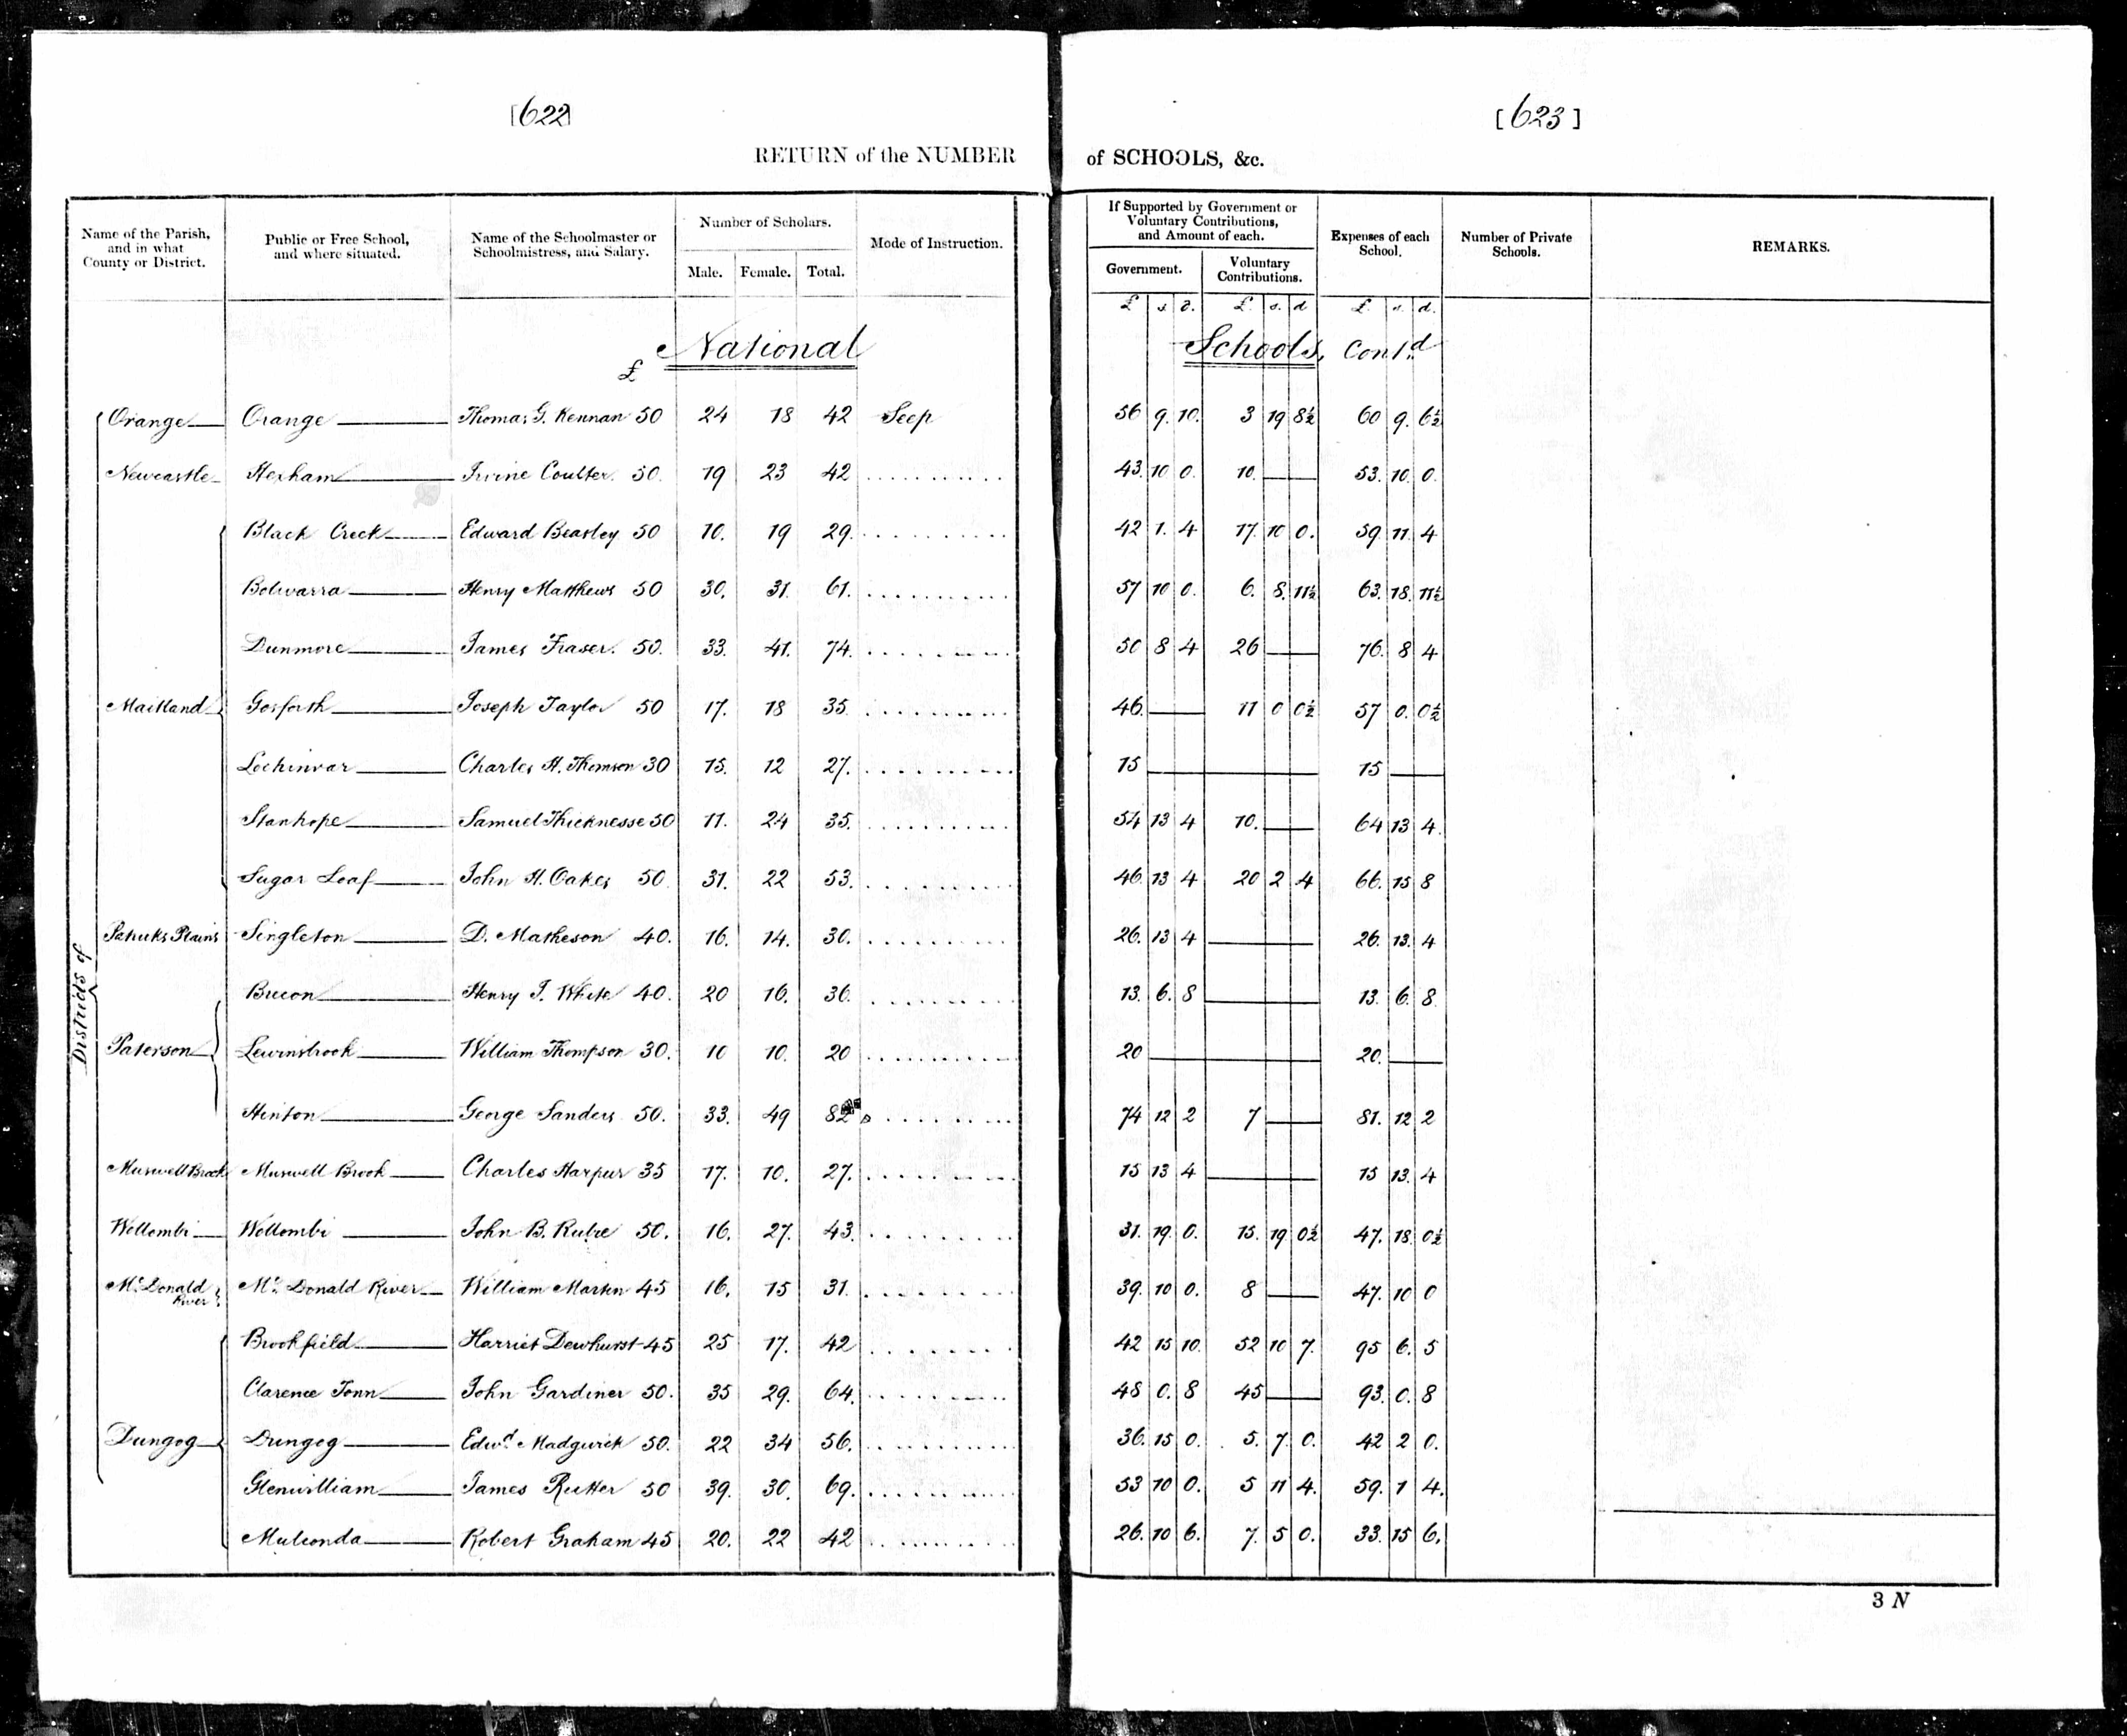 [622]
[623]
RETURN of the NUMBER of SCHOOLS, &c.
Name of the Parish, and in what County or District. | Public or Free School, and where situated. | Name of the Schoolmaster or Schoolmistress, and Salary. | Number of Scholars. Male. Female. Total. | Mode of Instruction. | If Supported by Government or Voluntary Contributions, and Amount of each. Government. Voluntary Contributions. | Expenses of each School. | Number of Private Schools. | REMARKS.
£ s d. £ s. d £ s. d.
National Schools, Cont.d
£
Districts of
Orange Orange Thomas G. Kennan 50 24 18 42 Seep 56 9. 10. 3 19 8½ 60 9. 6½
Newcastle Hexham Irvine Coulter. 50. 19 23 42 43. 10 0. 10. 53. 10. 0.
Black Creek Edward Beasley 50 10. 19 29. 42 1. 4 17. 10 0. 59. 11. 4
Bolwarra Henry Matthews 50 30. 31. 61. 57 10 0. 6. 8. 11½ 63. 18. 11½
Dunmore James Fraser. 50. 33. 41. 74. 50 8 4 26 76. 8 4
Maitland Gosforth Joseph Taylor 50 17. 18 35 46. 11 0 0½ 57 0. 0½
Lochinvar Charles H. Thomson 30 15. 12 27. 15 15
Stanhope Samuel Thicknesse 50 11. 24 35. 54 13 4 10. 64 13 4.
Sugar Loaf John H. Oakes 50 31. 22 53. 46. 13 4 20 2 4 66. 15 8
Patricks Plains Singleton D. Matheson 40. 16. 14. 30. 26. 13 4 26. 13. 4
Brecon Henry J. White 40. 20 16. 36. 13. 6. 8 13. 6. 8
Paterson Lewinsbrook William Thompson 30. 10 10. 20 20 20.
Hinton George Sanders 50. 33. 49 82 74 12 2 7 81. 12 2
Muswell Brook Muswell Brook Charles Harpur 35 17. 10. 27. 15 13 4 15 13. 4
Wollombi Wollombi John B. Rubie 50. 16. 27. 43. 31. 19. 0. 15. 19 0½ 47. 18. 0½
Mc. Donald River Mc. Donald River William Martin 45 16. 15 31. 39. 10 0. 8 47. 10 0
Brookfield Harriet Dewhurst 45 25 17. 42 42 15 10. 52 10 7. 95 6. 5
Clarence Town John Gardiner 50. 35 29. 64. 48 0. 8 45 93. 0. 8
Dungog Dungog Edwd. Madgwick 50. 22 34 56. 36. 15 0. 5. 7. 0. 42 2 0.
Glenwilliam James Rutter 50 39. 30. 69. 53 10 0. 5 11 4. 59. 1 4.
Mulconda Robert Graham 45 20. 22 42 26. 10 6. 7. 5 0. 33. 15 6.
3 N